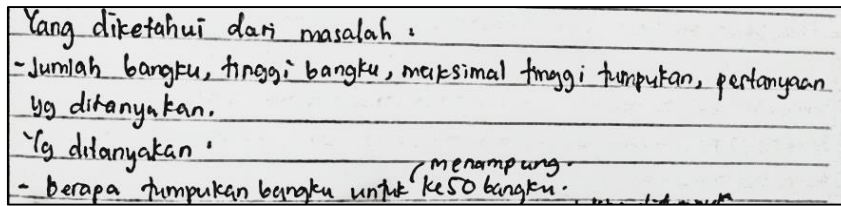 Yang diketahui dari masalah :
- Jumlah bangku, tinggi bangku, maksimal tinggi tumpukan, pertanyaan
yg ditanyakan.
Yg ditanyakan :
- berapa tumpukan bangku untuk menampung ke 50 bangku.